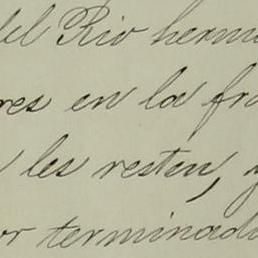 del Rio herm
res en la fra
les resten, y
or terminado